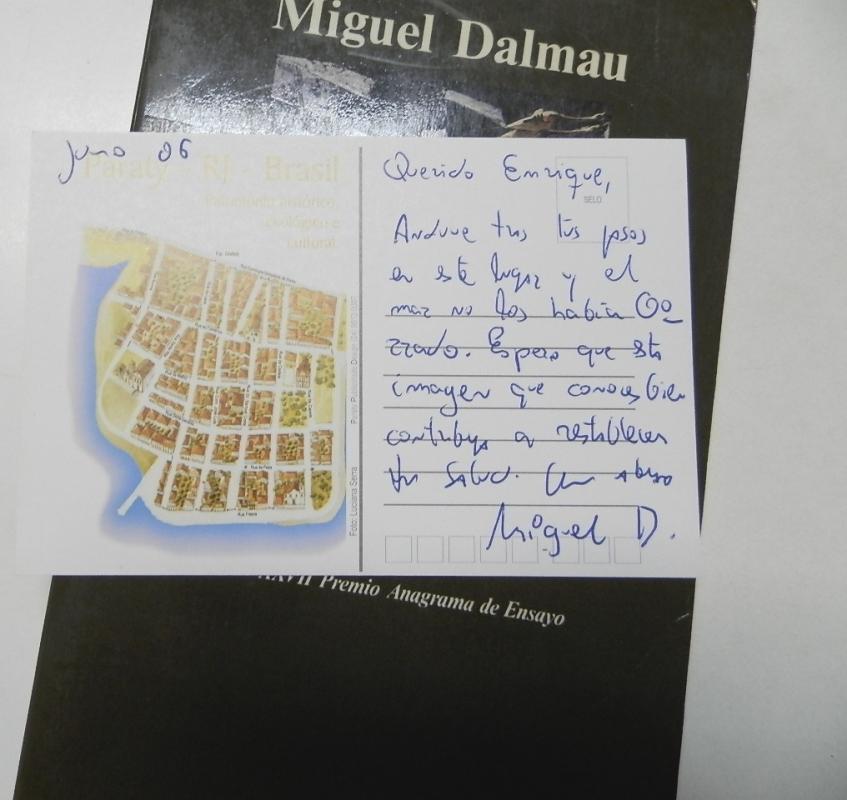 Miguel Dalmau
Junio 06
Paraty - RJ - Brasil
Patrimônio histórico,
ecológico e
cultural.
SELO
Querido Enrique,
Anduve tras tus pasos
en este lugar y el
mar no los había bo-
rrado. Espero que esta
imagen que conoces bien
contribuya a restablecer
tu salud. Un abrazo
Miguel D.
Foto: Luciana Serra
XXVII Premio Anagrama de Ensayo